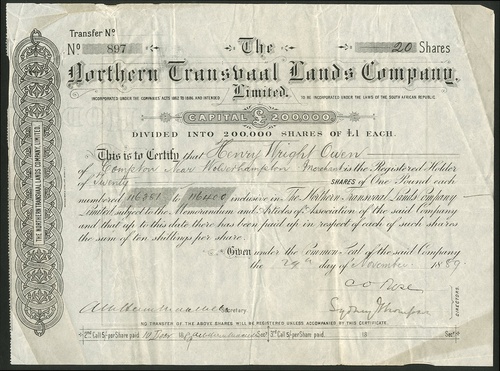 Transfer No
No 897
20 Shares
The
Northern Transvaal Lands Company,
Limited.
INCORPORATED UNDER THE COMPANIES ACTS 1862 TO 1886, AND INTENDED TO BE INCORPORATED UNDER THE LAWS OF THE SOUTH AFRICAN REPUBLIC.
CAPITAL £200000
DIVIDED INTO 200.000 SHARES OF £1 EACH.
This is to Certify that Henry Wright Owen
of Compton Near Wolverhampton Merchant is the Registered Holder
of Twenty SHARES of One Pound each
numbered 116381 to 116400 inclusive in The Northern Transvaal Lands Company
Limited subject to the Memorandum and Articles of Association of the said Company
and that up to this date there has been paid up in respect of each of such shares
the sum of ten shillings per share.
Given under the Common Seal of the said Company
the 29th day of November 1889
DIRECTORS.
Secretary.
NO TRANSFER OF THE ABOVE SHARES WILL BE REGISTERED UNLESS ACCOMPANIED BY THIS CERTIFICATE.
2nd Call 5/- per Share paid Secy 3rd Call 5/- per Share paid 18 Secy
THE NORTHERN TRANSVAAL LANDS COMPANY, LIMITED.